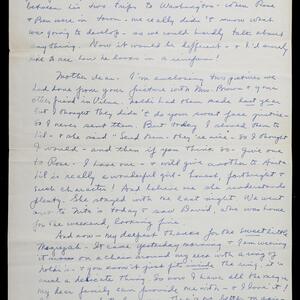 between his two trips to Washington - when Rose
& Ben were in town - we really didn't know what
was going to develop - so we could hardly talk about
anything. Now it would be different - & I'd surely
like to see how he looks in a uniform!
Mother dear - I'm enclosing two pictures we
had done from your picture with Mrs. Brown & your
other friend in Vilna. had them made last year
but I thought They didn't do your sweet face justice
so I never sent them. But Today I showed them to
Lil - & she said - "Send Them - they're nice - So I thought
I would - and then if you think so - give one
to Rose - I have one - & will give another to Anita
Lil is really a wonderful girl - honest, forthright &
such character! And believe me she understands
plenty. She stayed with me last night. We went
over to today & saw David, who was home
for the weekend, looking fine.
And now - My deepest thanks for the sweet little
It came yesterday morning & I am wearing
it now on a chain around my neck with a ring of
& you know it just fits in the ring, it is
such a delicate thing. So now I have all the
my dear family can provide me with - & I love it!